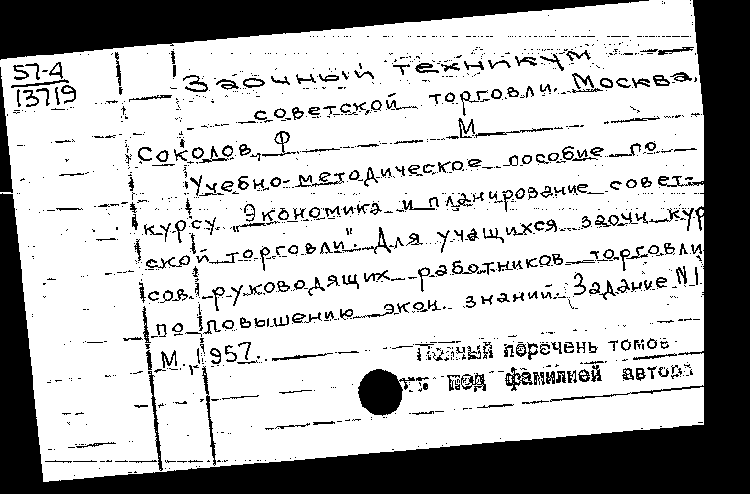 57-4
13719
Заочный техникум
советской торговли. Москва.
Соколов, Ф М
Учебно-методическое пособие по
курсу "Экономика и планирование совет-
ской торговли". Для учащихся заочн. кур
сов руководящих работников торговли
по повышению экон. знаний. Задание N 1
М., 1957.
Полный перечень томов
см. под фамилией автора